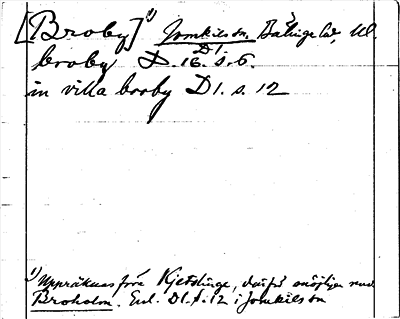 [Broby] 1) Jomkils sn. Bälinge hd, Ul.
broby D. 16. s. 6.
D 1.
in villa broby D 1. s. 12
1) Uppräknas före Kjettslinge, därför möjligen
Broholm. Enl. D1. s. 12 i Jomkils sn